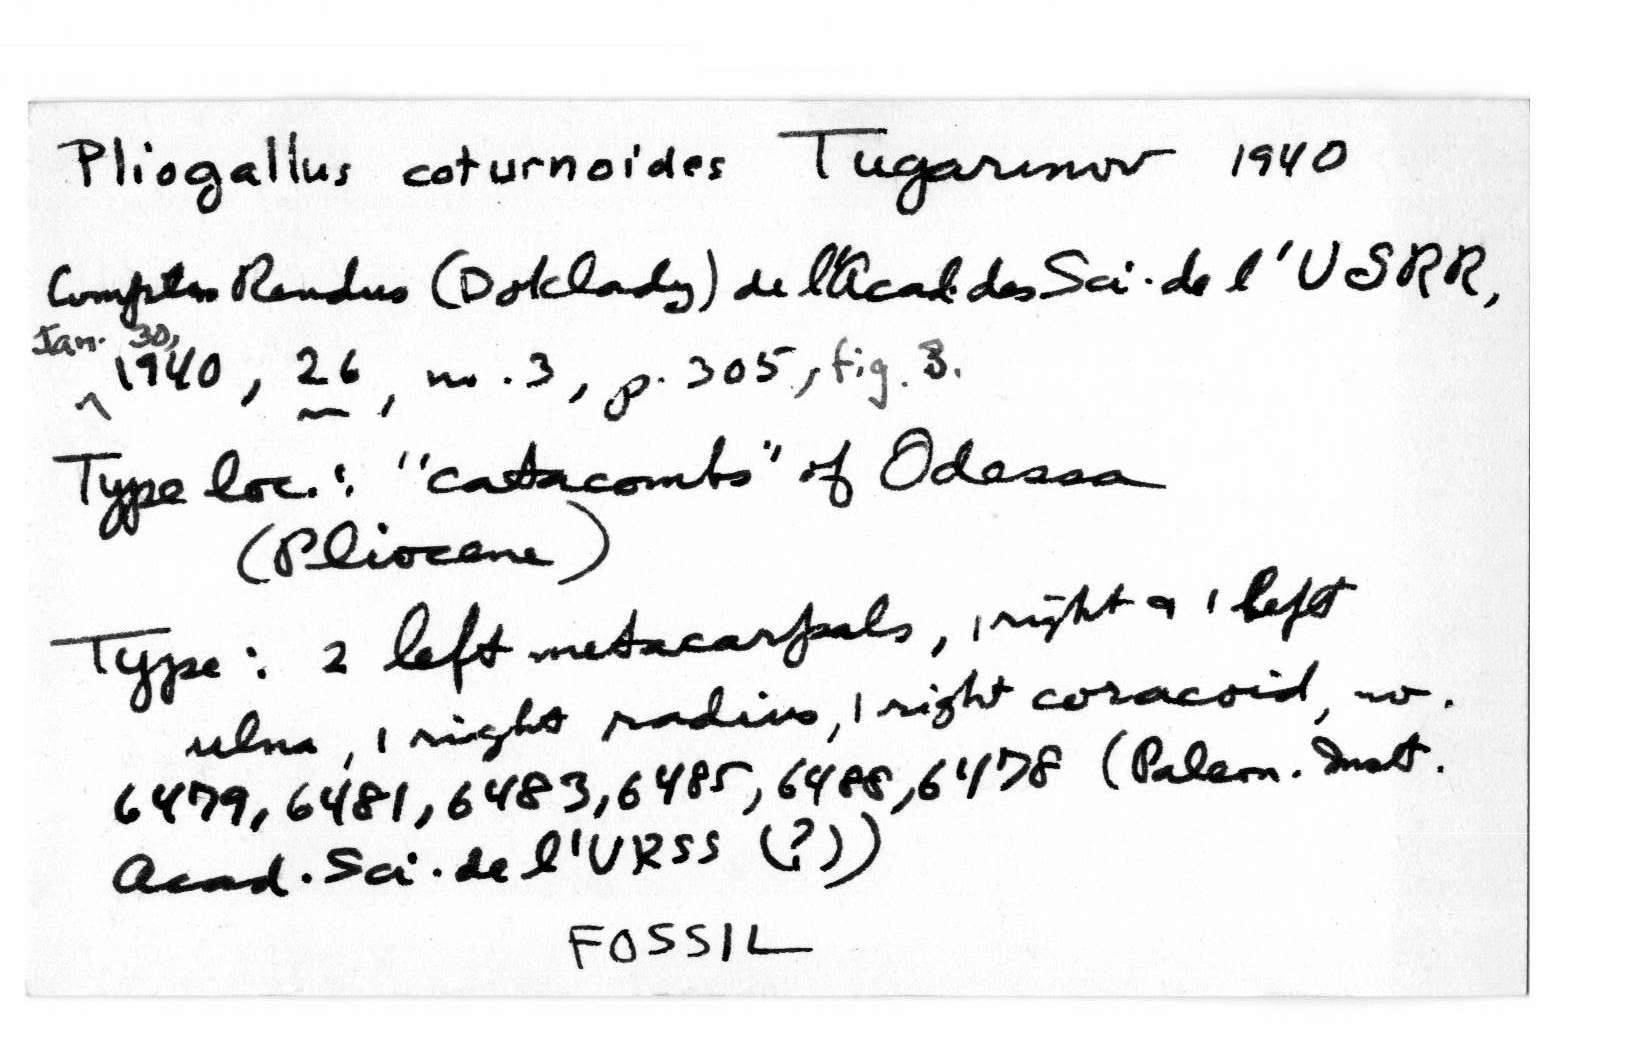 Pliogallus coturnoides Tugarinov 1940
Comptes Rendus (Doklady) de l'Acad. des Sci. de l'USRR,
Jan. 30,
1940, 26, no. 3, p. 305, fig. 3.
Type loc.: "catacombs" of Odessa
(Pliocene)
Type: 2 left metacarpals, 1 right & 1 left
ulna, 1 right radius, 1 right coracoid, no.
6479, 6481, 6483, 6485, 6488, 6478 (Paleon. Inst.
Acad. Sci. de l'URSS (?))
FOSSIL